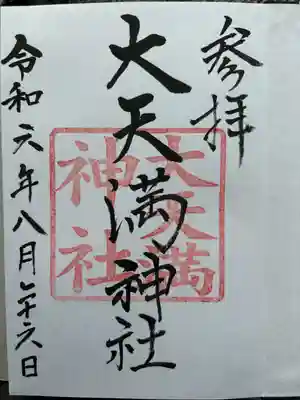 参拝
大天満神社
令和元年八月二十六日
大天満
神社